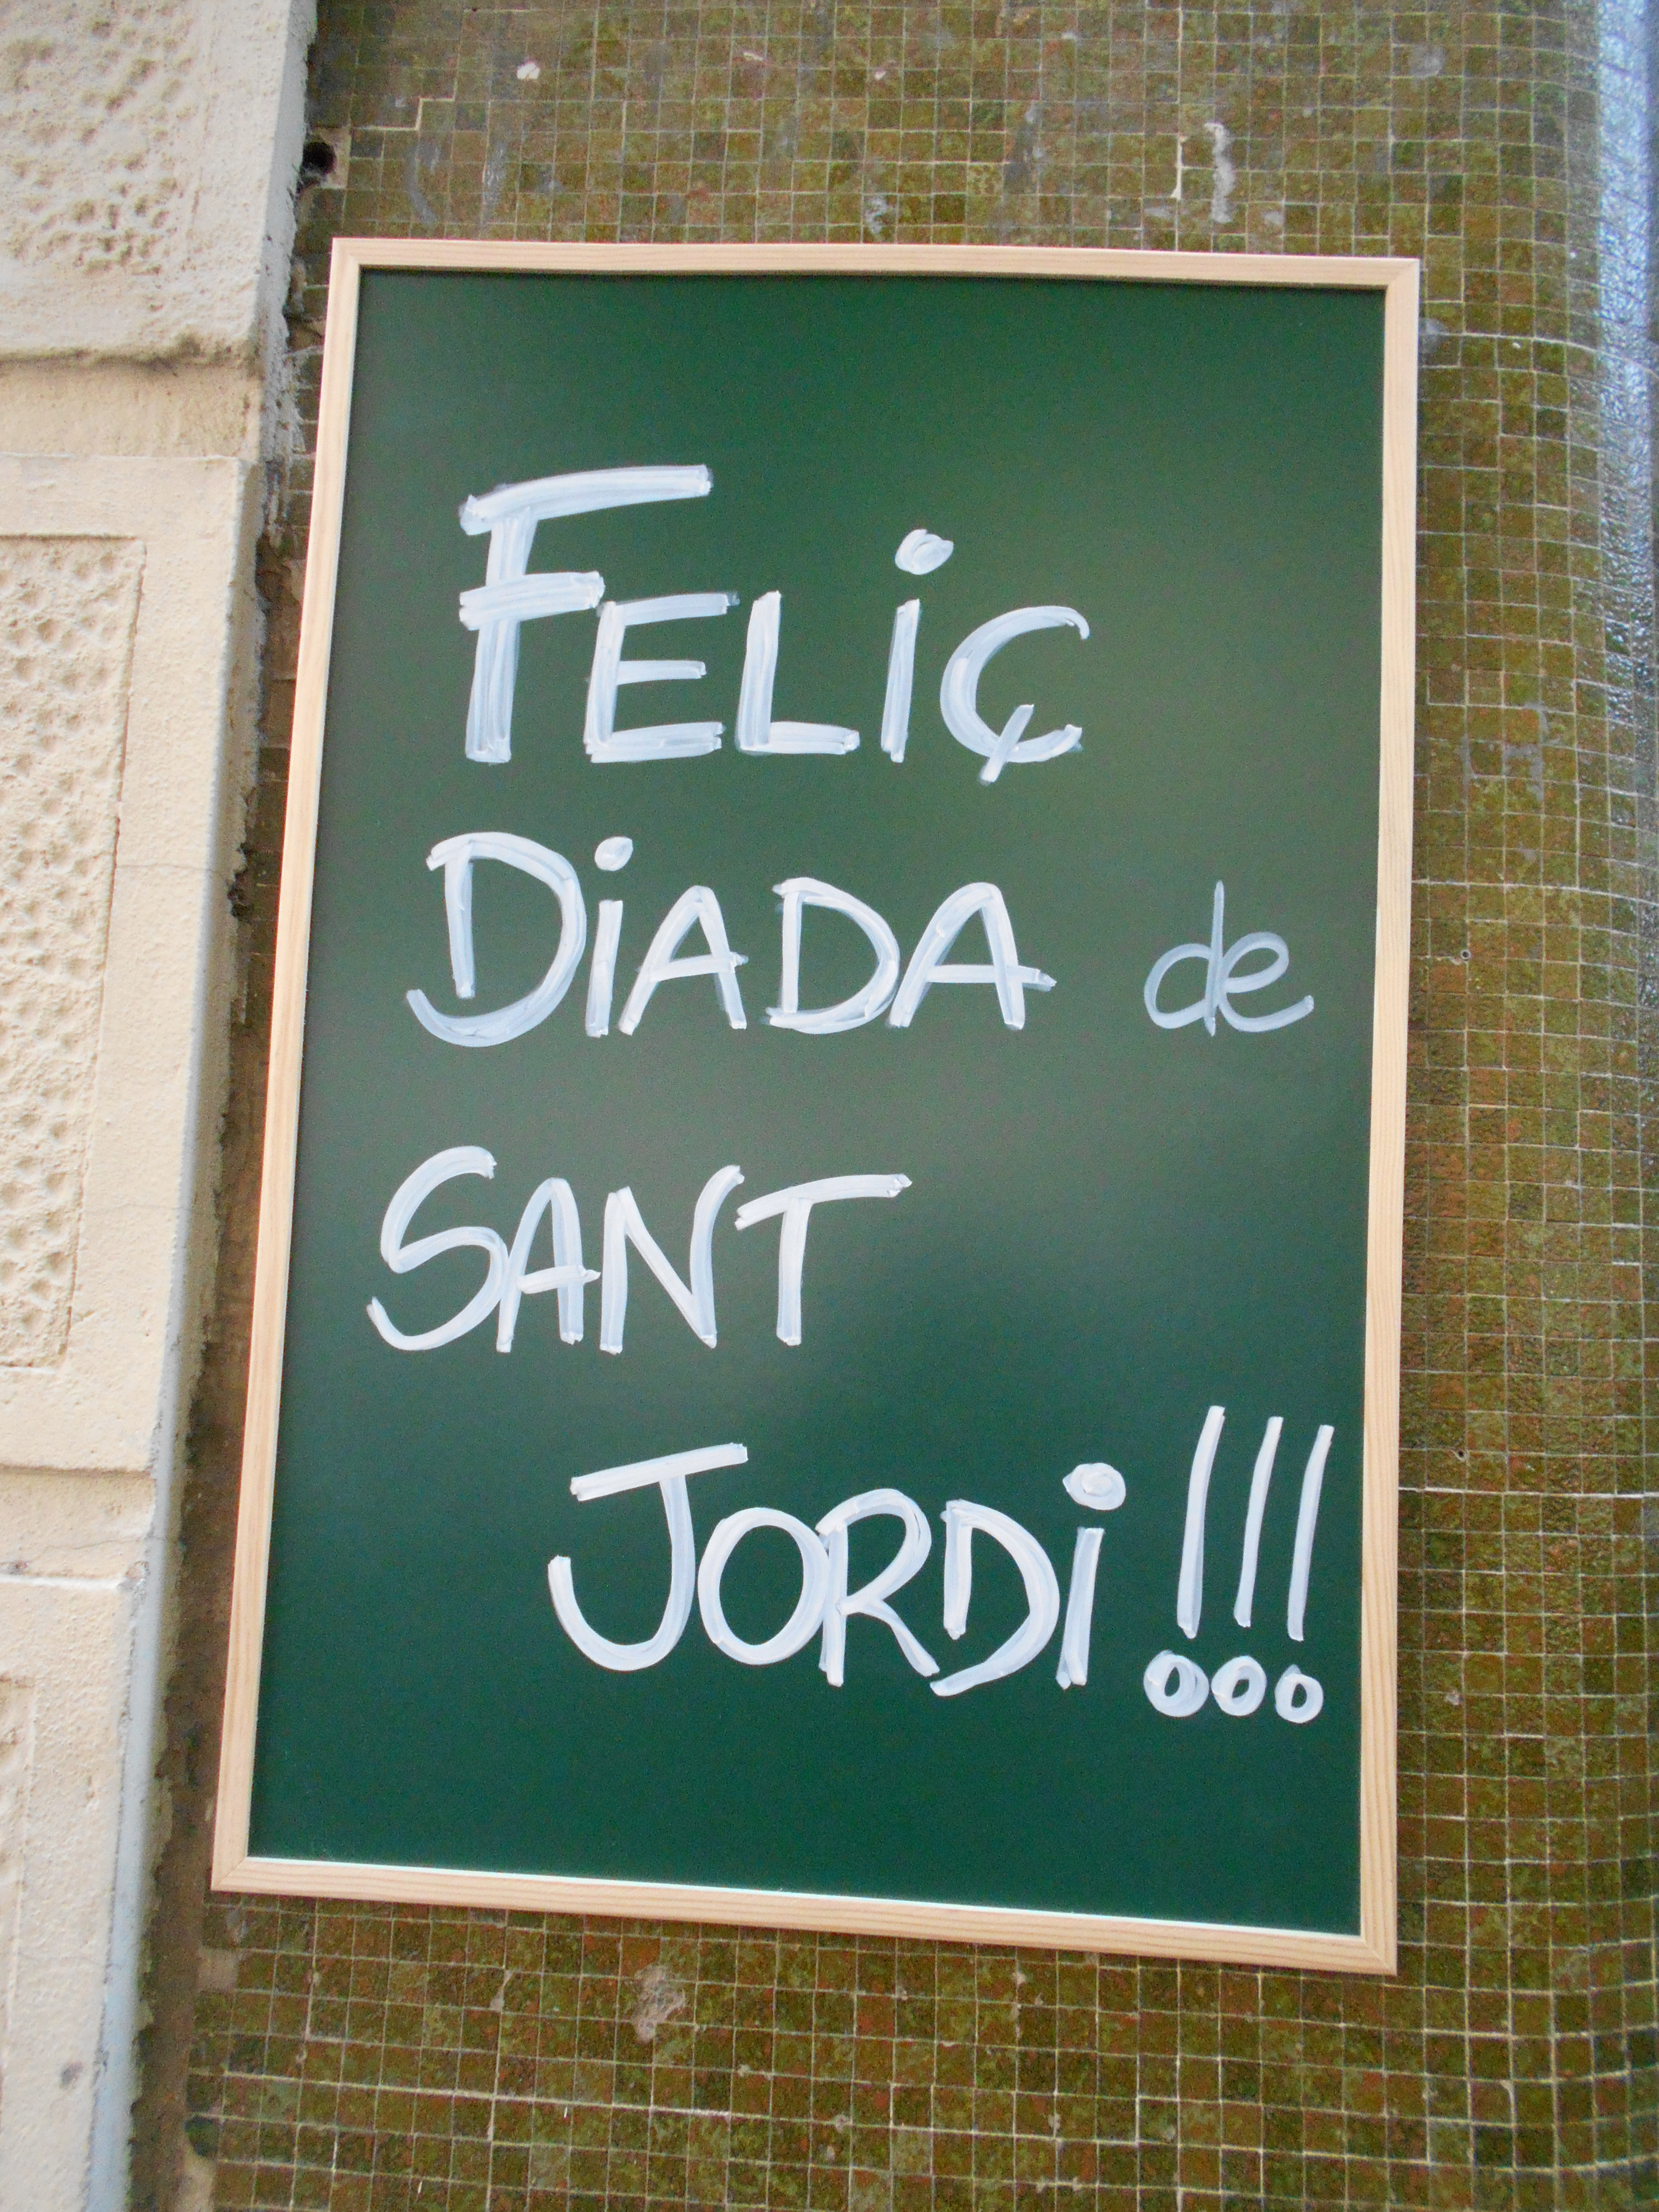 FELiÇ
DiADA de
SANT
JORDi!!!